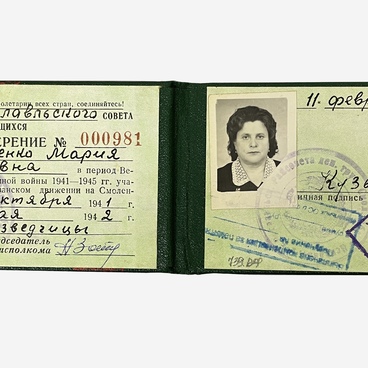 ролетарии всех стран, соединяйтесь!
славльского СОВЕТА
ЩИХСЯ
ЕРЕНИЕ № 000981
енко Мария
вна в период Ве-
ной войны 1941—1945 гг. уча-
занском движении на Смолен-
октября 1941 г.
ая 1942 г.
зведчицы
едседатель
исполкома
11. февр
Кузь
ичная подпись